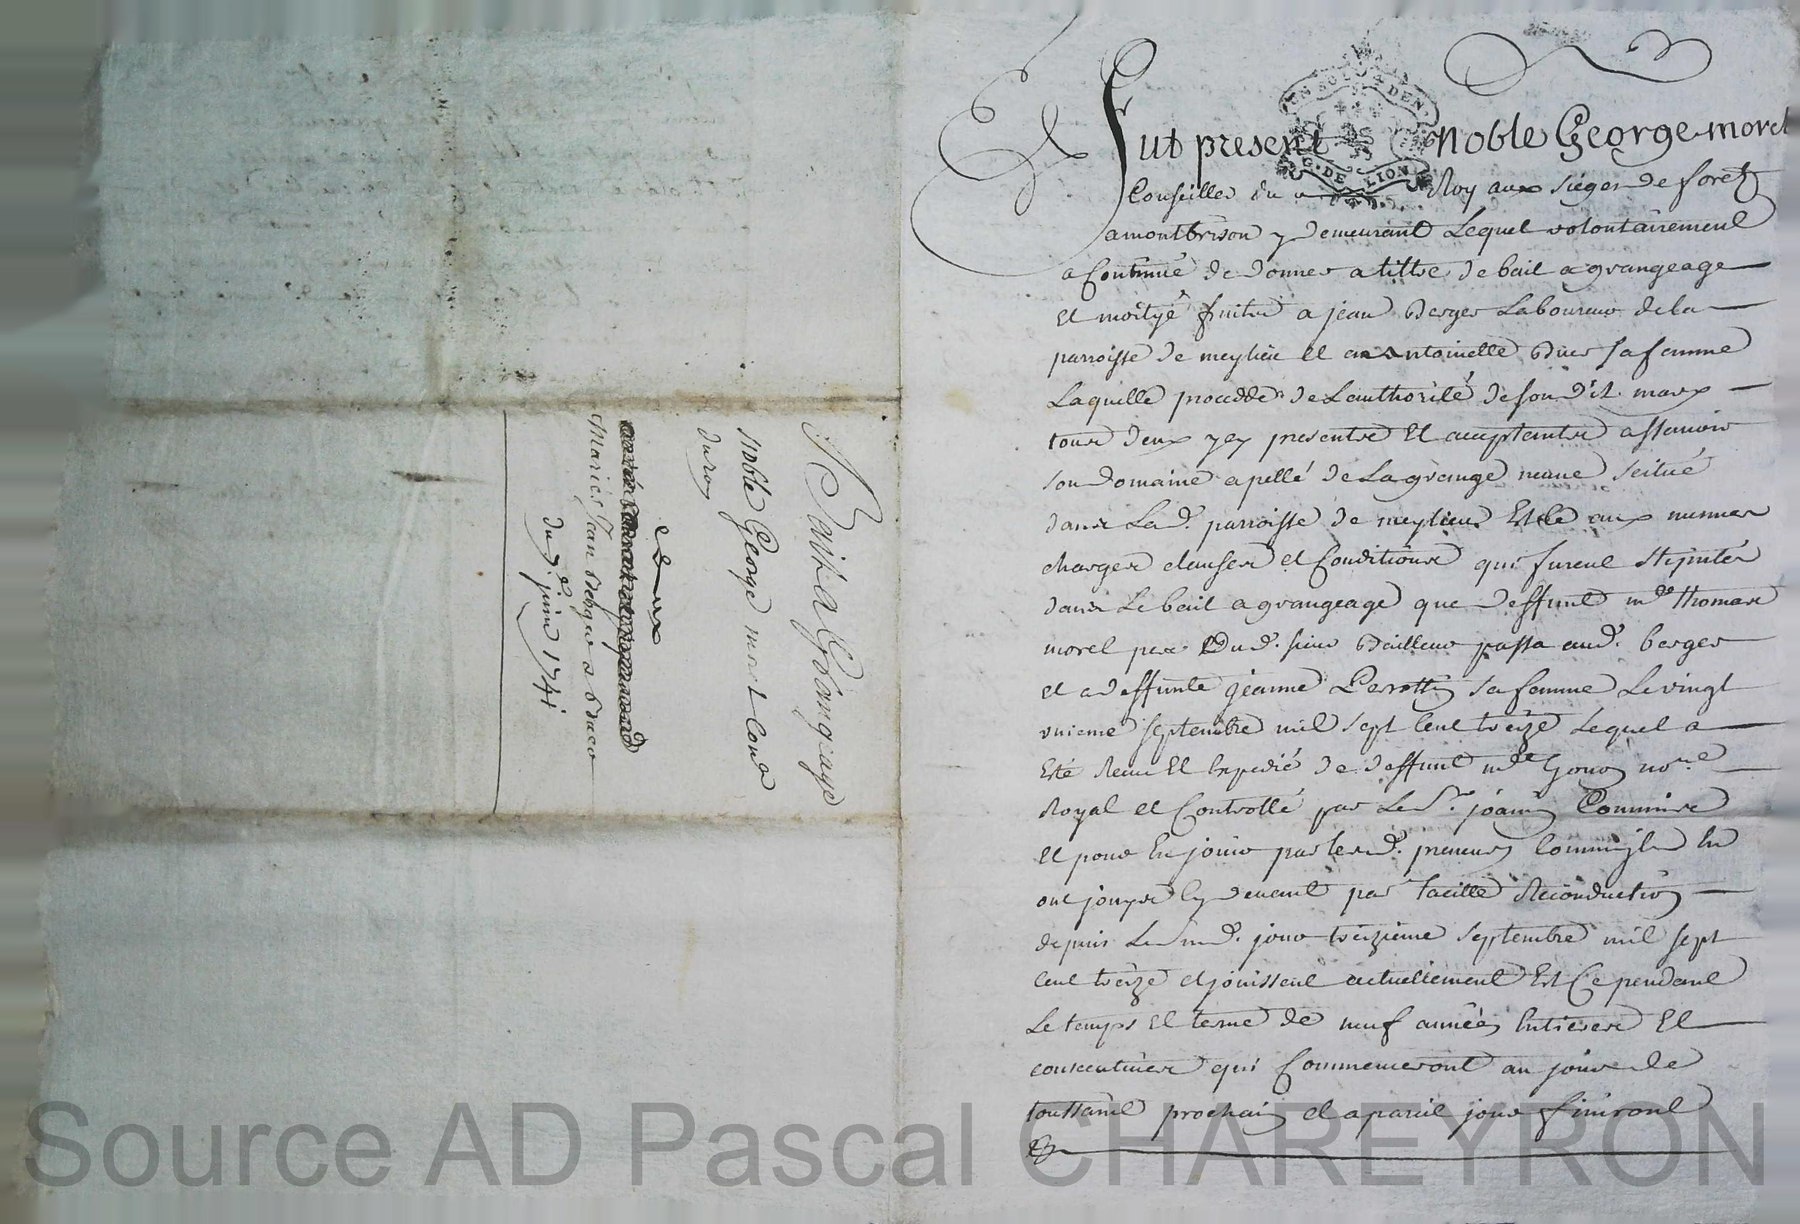 Bail a Grangeage
noble George morel Cons.
du roy
a
Mariés Jean Berger a Brues
du 7e. juin 1741
UN SOL 4 DEN.
G. DE LION
Fut present Noble George morel
Conseiller du Roy aux sieges de forez
a montbrison y demeurant Lequel volontairement
a Continué de donner a tiltre de bail a grangeage
Et moityé fruits a jean Berger Laboureur de la
parroisse de meylieu et a antoinette Brues sa femme
Laquelle procedde de L'authorité de son dit mary
tous deux yey presents Et acceptants assavoir
son domaine apellé de La grange neuve scitué
dans La d. parroisse de meylieu Et Ce aux mesmes
charges clauses et Conditions qui furent stipulés
dans Le bail a grangeage que deffunt me. thomas
morel pere Du d. sieur Bailleur passa aud. berger
et a deffunte jeanne sa femme Le vingt
unieme septembre mil sept Cent treize Lequel a
Eté Receu Et Expedié de deffunt me. nore.
Royal et Controllé par Le Sr. joanin Commis
Et pour En jouir par lesd. preneurs Comme ils En
ont jouy Cy devant par Tacitte Reconduction
depuis Le sud. jour treizieme septembre mil sept
Cent treize et jouissent actuellement Et Ce pendant
Le temps Et terme de neuf années Entieres Et
consecutives qui Commenceront au jour de
toussaint prochain et a pareil jour finiront
Source AD Pascal CHAREYRON